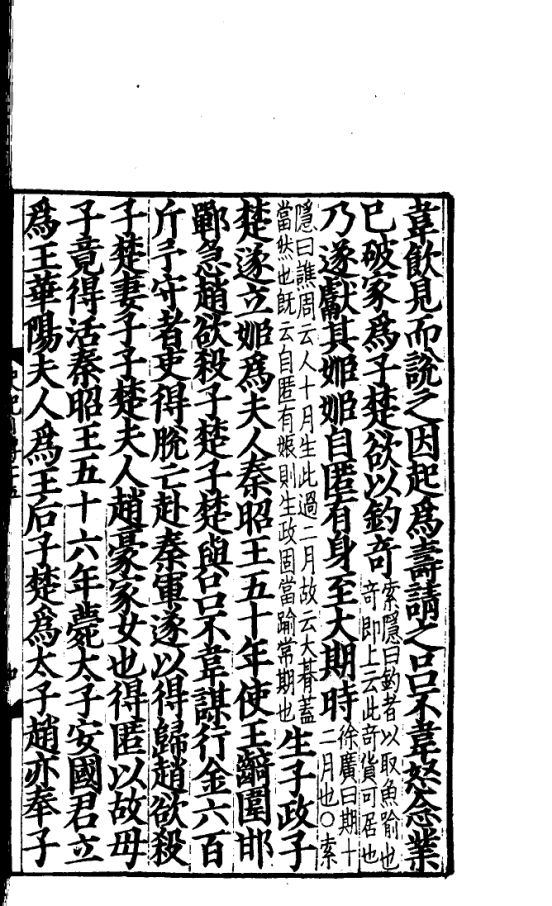 韋飲見而說之因起爲壽請之呂不韋怒念業
已破家爲子楚欲以釣奇索隱曰釣者以取魚喻也奇即上云此奇貨可居也
乃遂獻其姬姬自匿有身至大期時徐廣曰期十二月也〇索
隱曰譙周云人十月生此過二月故云大朞蓋當然也旣云自匿有娠則生政固當踰常期也生子政子
楚遂立姬爲夫人秦昭王五十年使王齮圍邯
鄲急趙欲殺子楚子楚與呂不韋謀行金六百
斤予守者吏得脫亡赴秦軍遂以得歸趙欲殺
子楚妻子子楚夫人趙豪家女也得匿以故母
子竟得活秦昭王五十六年薨太子安國君立
爲王華陽夫人爲王后子楚爲太子趙亦奉子